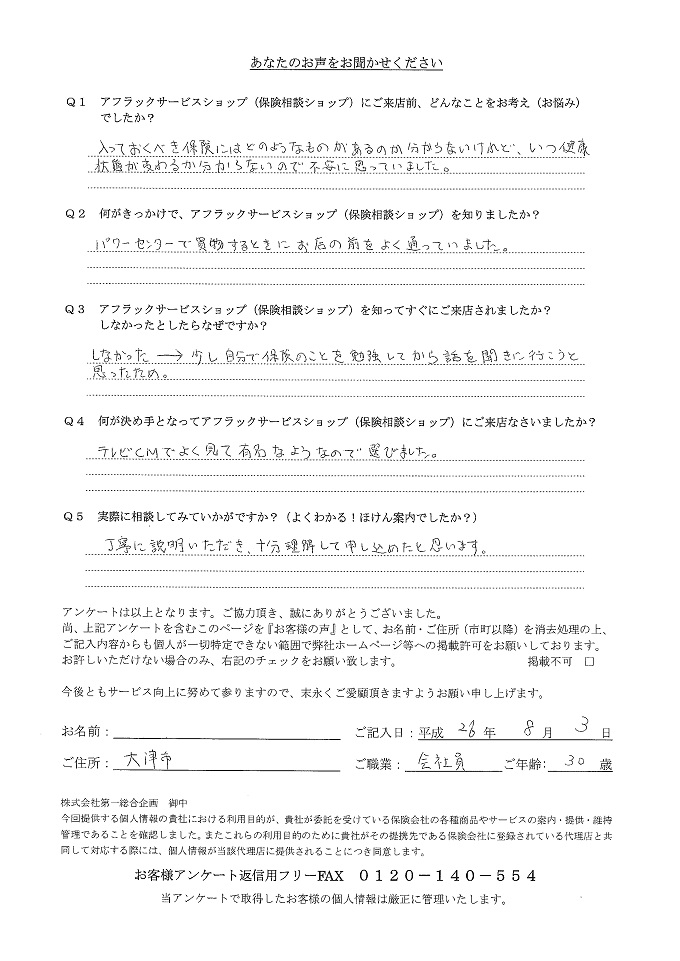 あなたのお声をお聞かせください
Q1 アフラックサービスショップ（保険相談ショップ）にご来店前、どんなことをお考え（お悩み）
でしたか？
入っておくべき保険にはどのようなものがあるのか分からないけれど、いつ健康
状態が変わるか分からないので不安に思っていました。
Q2 何がきっかけで、アフラックサービスショップ（保険相談ショップ）を知りましたか？
パワーセンターで買物するときにお店の前をよく通っていました。
Q3 アフラックサービスショップ（保険相談ショップ）を知ってすぐにご来店されましたか？
しなかったとしたらなぜですか？
しなかった → 少し自分で保険のことを勉強してから話を聞きに行こうと
思ったため。
Q4 何が決め手となってアフラックサービスショップ（保険相談ショップ）にご来店なさいましたか？
テレビCMでよく見て有名なようなので選びました。
Q5 実際に相談してみていかがですか？（よくわかる！ほけん案内でしたか？）
丁寧に説明いただき、十分理解して申し込めたと思います。
アンケートは以上となります。ご協力頂き、誠にありがとうございました。
尚、上記アンケートを含むこのページを『お客様の声』として、お名前・ご住所（市町以降）を消去処理の上、
ご記入内容からも個人が一切特定できない範囲で弊社ホームページ等への掲載許可をお願いしております。
お許しいただけない場合のみ、右記のチェックをお願い致します。 掲載不可 □
今後ともサービス向上に努めて参りますので、末永くご愛顧頂きますようお願い申し上げます。
お名前： ご記入日：平成 26 年 8 月 3 日
ご住所： 大津市 ご職業： 会社員 ご年齢： 30 歳
株式会社第一総合企画 御中
今回提供する個人情報の貴社における利用目的が、貴社が委託を受けている保険会社の各種商品やサービスの案内・提供・維持
管理であることを確認しました。またこれらの利用目的のために貴社がその提携先である保険会社に登録されている代理店と共
同して対応する際には、個人情報が当該代理店に提供されることにつき同意します。
お客様アンケート返信用フリーFAX ０１２０－１４０－５５４
当アンケートで取得したお客様の個人情報は厳正に管理いたします。